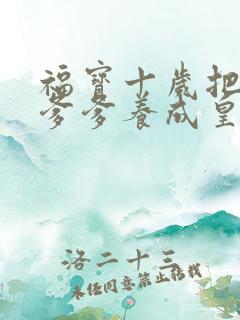 福宝十岁把
爹爹养成皇
洛二十三
未经同意禁止转载